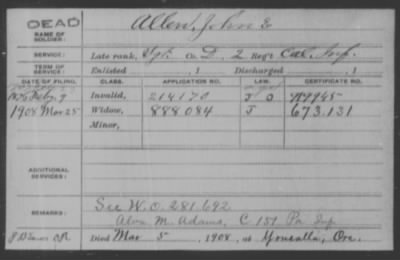 DEAD
NAME OF SOLDIER:
Allen, John E
SERVICE:
Late rank, Sgt. Co. D, 2 Reg't Cal. Inf.
TERM OF SERVICE:
Enlisted , 1 Discharged , 1
DATE OF FILING. CLASS. APPLICATION NO. LAW. CERTIFICATE NO.
1876 Feby. 9 Invalid, 214170
1908 Mar 25 Widow, 888084 673.131
Minor,
ADDITIONAL SERVICES:
REMARKS:
See W.O. 281.692
Alva M. Adams, C 151 Pa Inf
Died Mar 5, 1908, at Yoncalla, Ore.